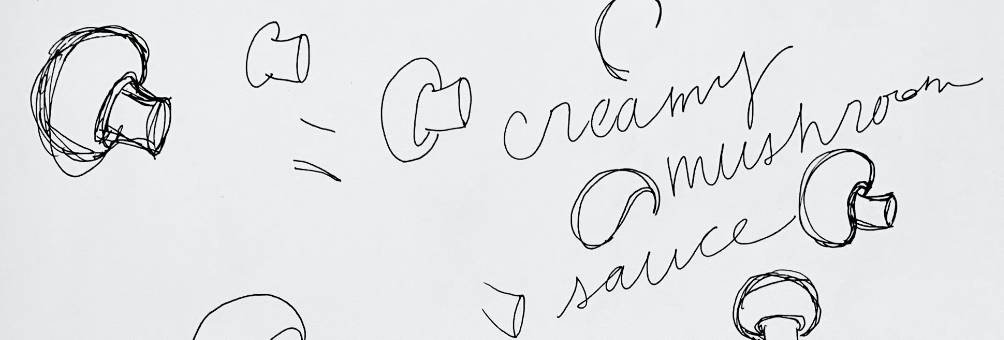 creamy
mushroom
sauce